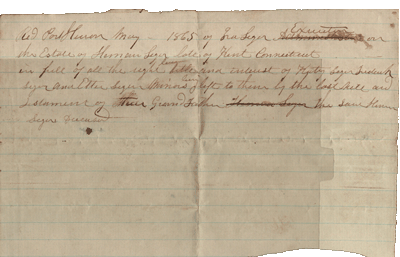 Rd Port Huron May — 1865 of Ira Seger Executor on
the Estate of Heman Seger late of Kent Connecticut
in full of all the right title and interest of Seger Frederick
Seger and Seger Minors left to them by the last will and
testament of their Grand Father Heman Seger the said Heman
Seger Deceased